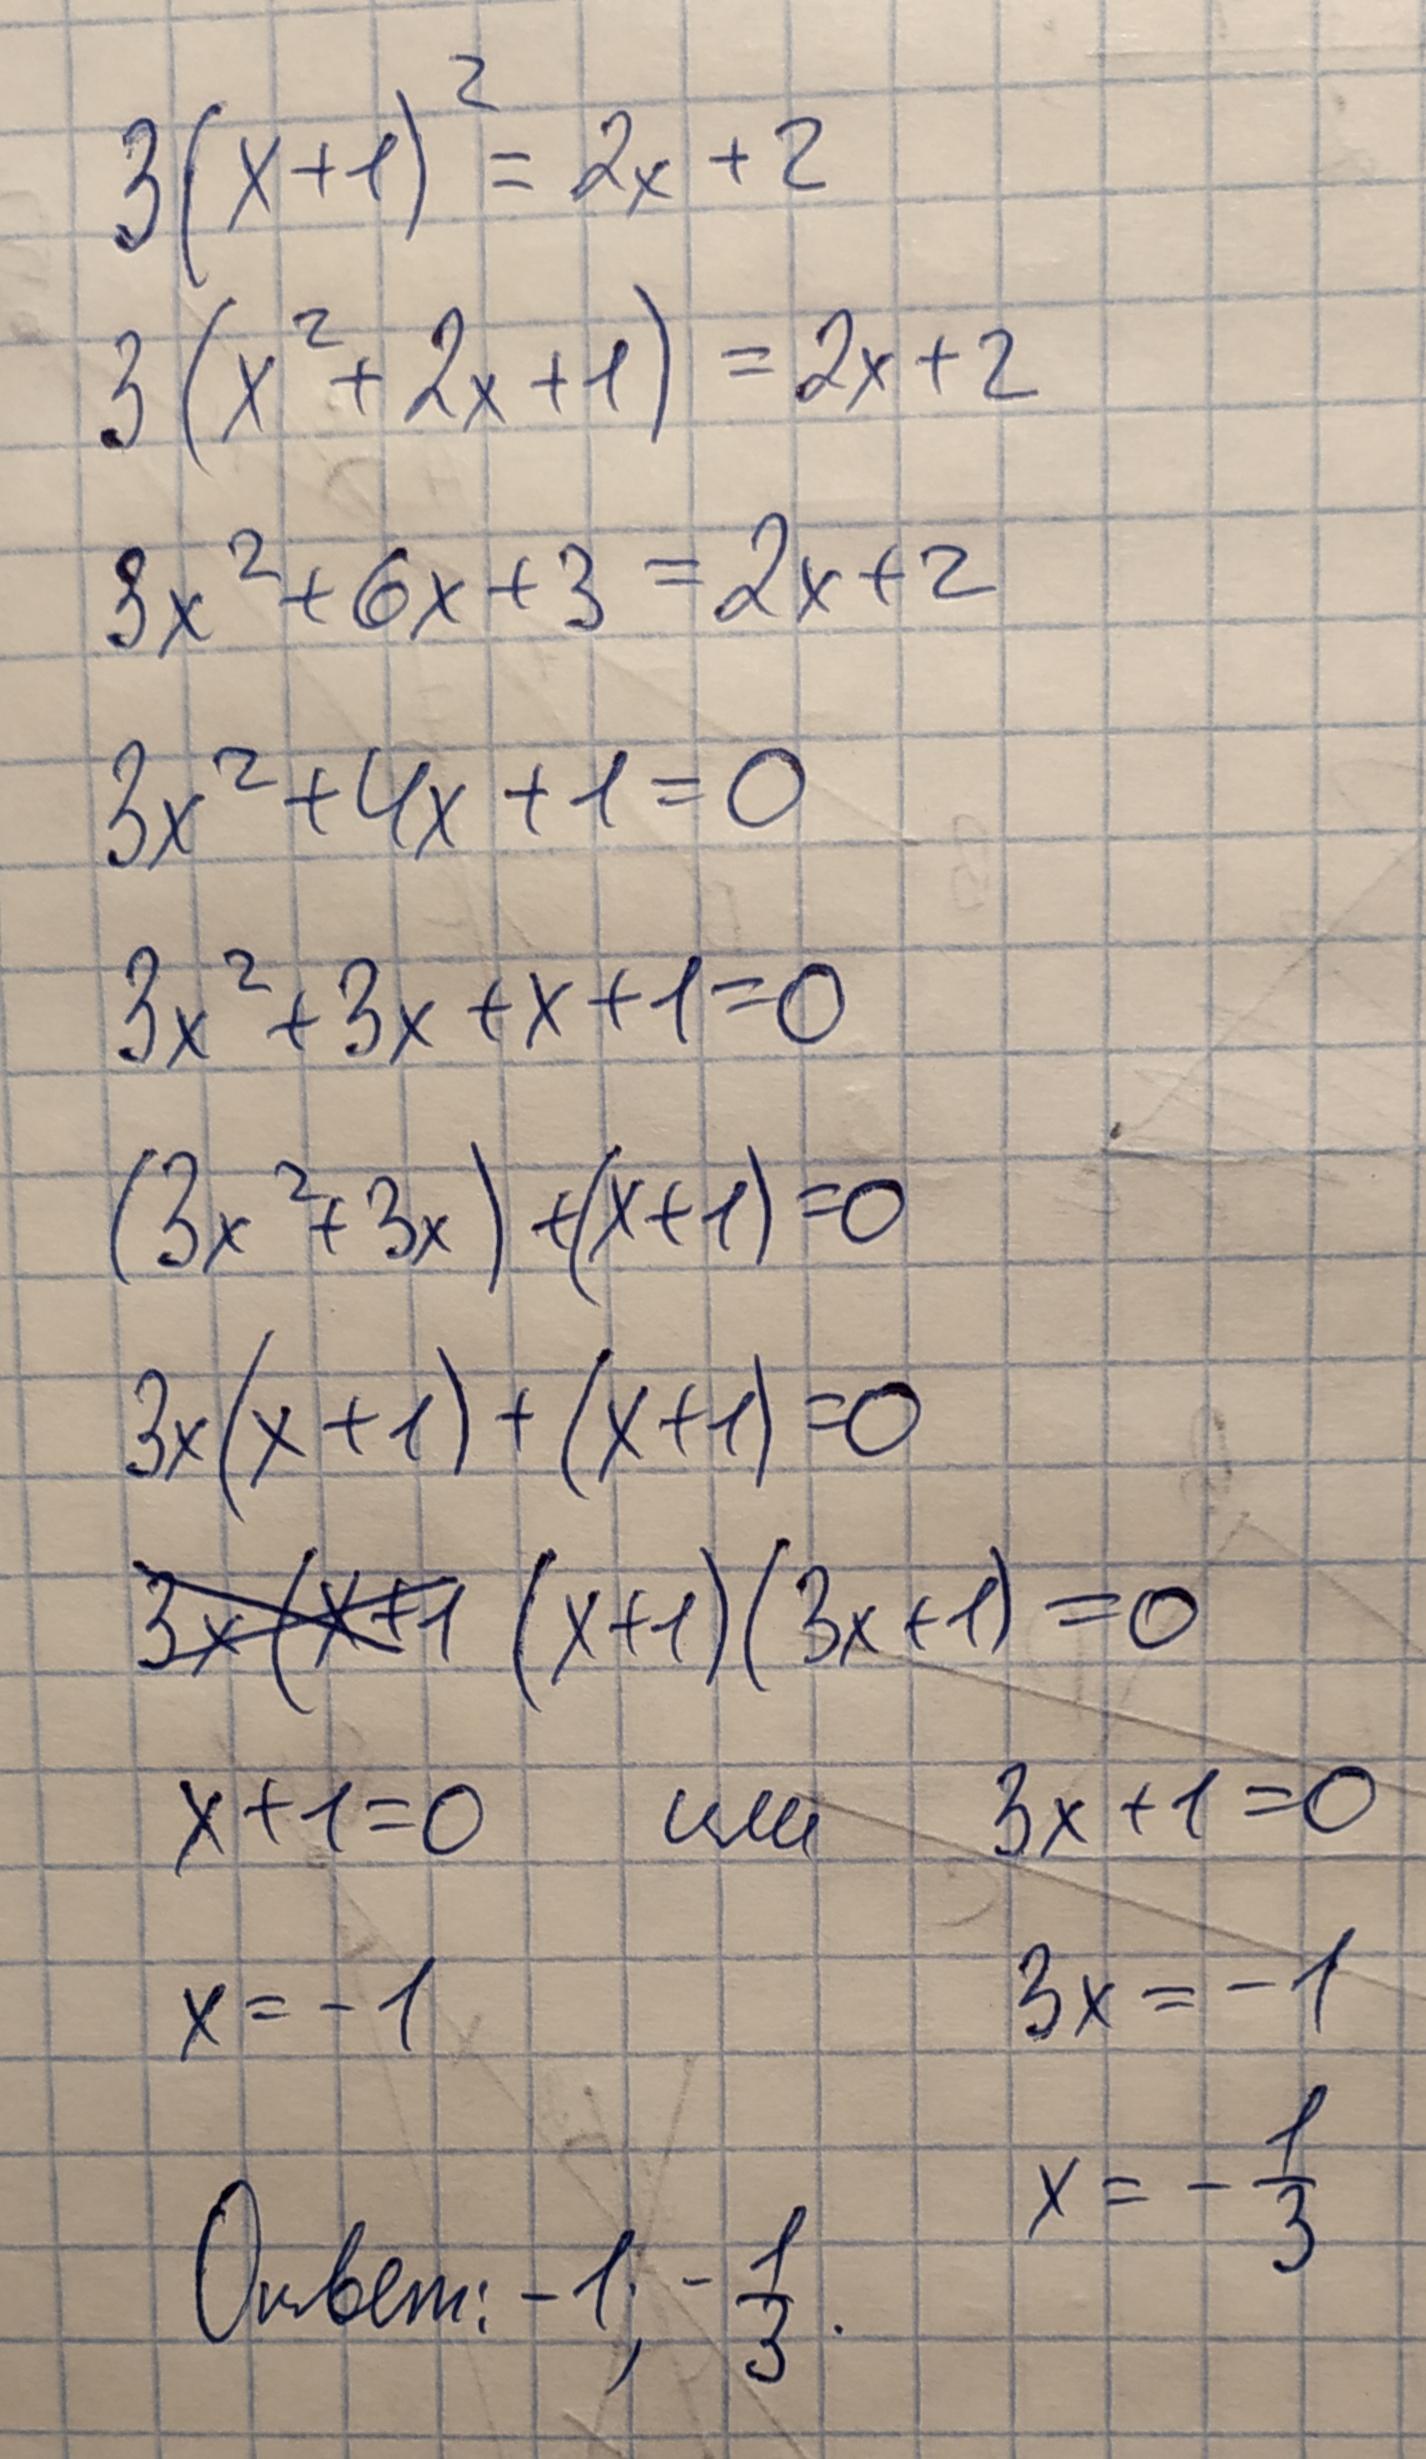 3(x+1)² = 2x+2
3(x²+2x+1) = 2x+2
3x²+6x+3 = 2x+2
3x²+4x+1=0
3x²+3x+x+1=0
(3x²+3x)+(x+1)=0
3x(x+1)+(x+1)=0
3x(x+1 (x+1)(3x+1)=0
x+1=0 или 3x+1=0
x=-1 3x=-1
x=-1/3
Ответ: -1; -1/3.